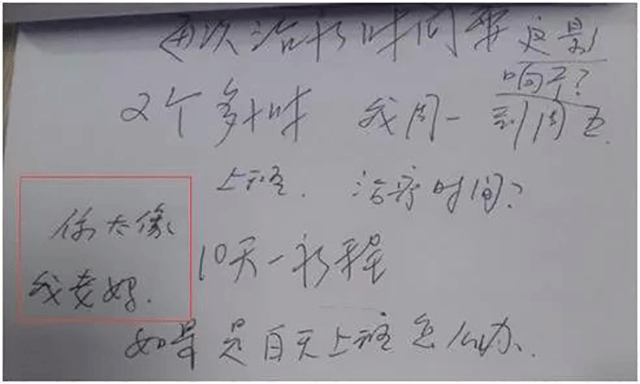 每次治疗时间要
影响
2个多小时 我周一到周五.
上班. 治疗时间?
你太像
我老妈.
10天一疗程
如果是白天上班怎么办.